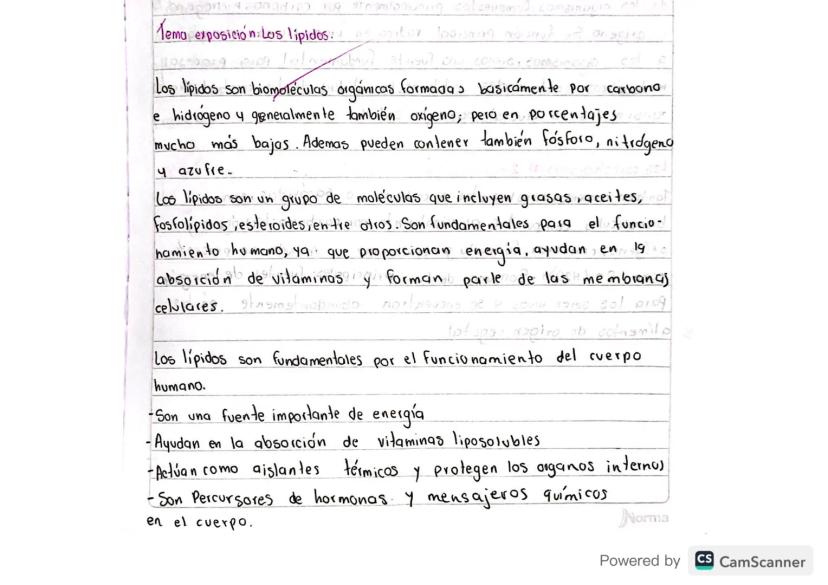 Tema exposición: Los lípidos.
Los lípidos son biomoléculas orgánicas formadas basicámente por carbono
e hidrógeno y generalmente también oxígeno; pero en porcentajes
mucho más bajos. Ademas pueden contener también fósforo, nitrógeno
y azufre.
Los lípidos son un grupo de moléculas que incluyen grasas, aceites,
fosfolípidos, esteroides, entre otros. Son fundamentales para el funcio-
namiento humano, ya que proporcionan energía, ayudan en la
absorción de vitaminas y forman parte de las membranas
celulares.
Los lípidos son fundamentales por el funcionamiento del cuerpo
humano.
-Son una fuente importante de energía
-Ayudan en la absorción de vitaminas liposolubles
-Actúan como aislantes térmicos y protegen los organos internos
-Son Percursores de hormonas y mensajeros químicos
en el cuerpo.
Norma
Powered by CS CamScanner